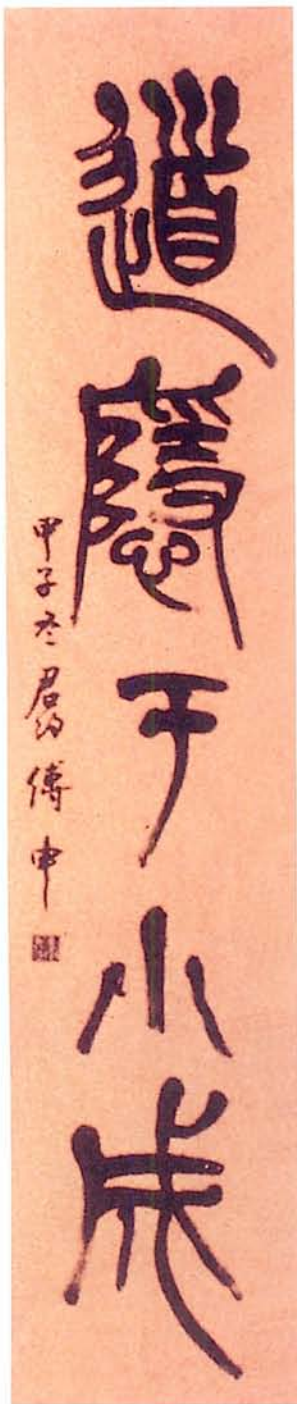 道隱于小成
甲子冬君約傅申